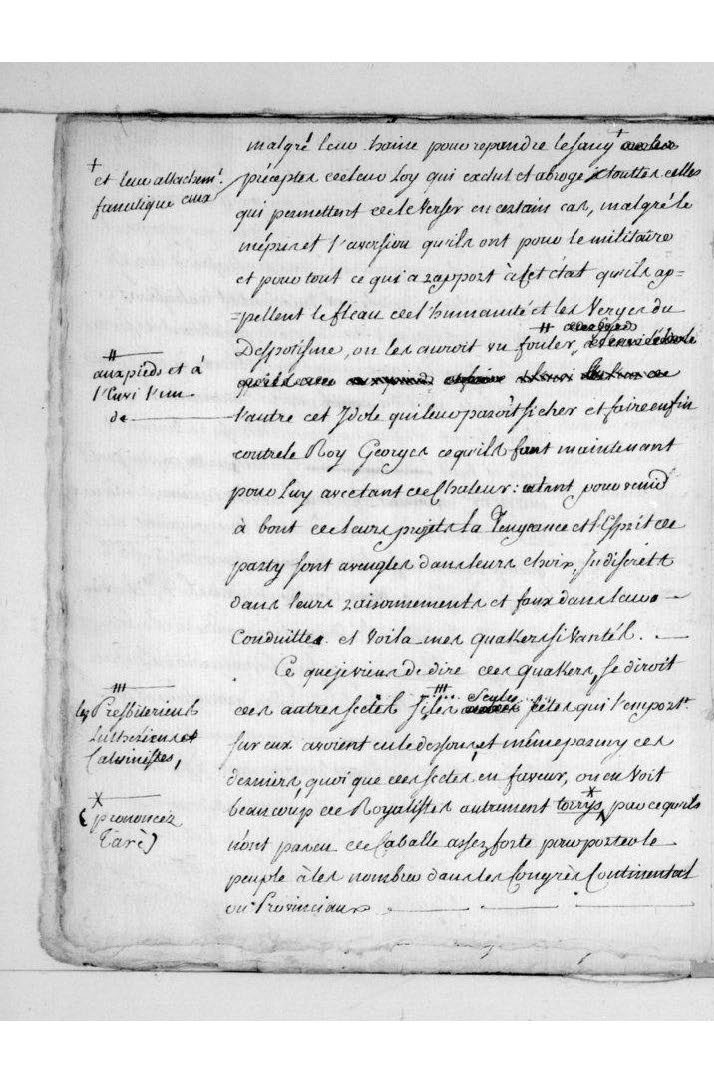 malgré leur haine pour repandre le sang +
+
et leur attachem.t
fanatique aux
préceptes de leur Loy qui exclut et abroge touttes celles
qui permettent de le Verser en certain cas, malgré le
mépris et l'aversion qu'ils ont pour le militaire
et pour tout ce qui a rapport à cet état qu'ils ap=
=pellent le fleau de l'humanité et les Verges du
Despotisme, on les auroit vu fouler, #
#
aux pieds et à
l'Envi l'un
de
l'autre cet Idole qui leur paroît si cher et faire enfin
contre le Roy Georges ce qu'ils font maintenant
pour Luy avec tant de Chaleur: tant pour venir
à bout de leurs projets la Vengeance et l'Esprit de
party sont aveugles dans leurs choix, Indiscrets
dans leurs raisonnements et faux dans leur
Conduitte. et Voila mes quakers si Vantés.
Ce que je viens de dire des quakers, se diroit
des autres sectes si les seules sectes qui l'emport.t
III
les Presbiteriens
Lutheriens et
Calvinistes,
sur eux avoient eu le dessous, et même parmy ces
derniers, quoi que des sectes en faveur, on en Voit
beaucoup de Royalistes autrement torrys, * parce qu'ils
*
(prononcez
Tarè)
n'ont pas eu de Caballe assez forte pour porter le
peuple à les nombrer dans les Congrès Continental
ou Provinciaux